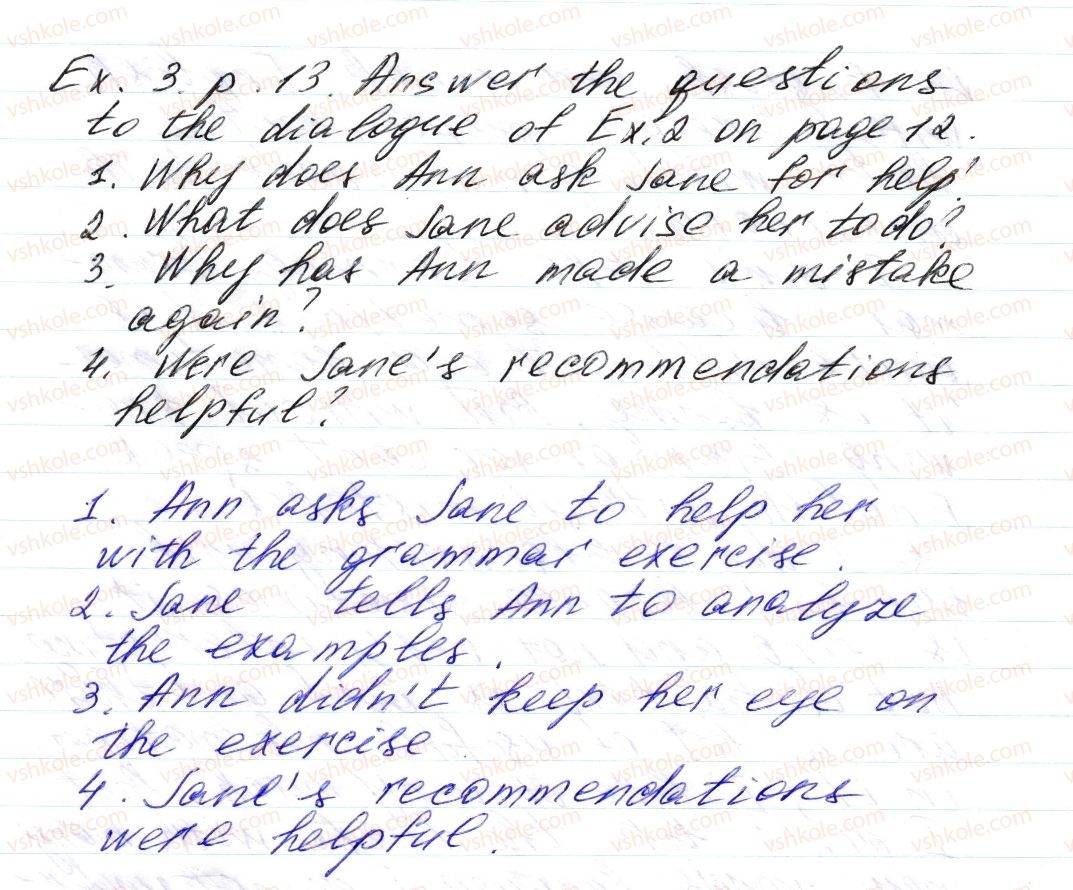 Ex. 3. p. 13. Answer the questions
to the dialogue of Ex. 2 on page 12.
1. Why does Ann ask Jane for help?
2. What does Jane advise her to do?
3. Why has Ann made a mistake
again?
4. Were Jane's recommendations
helpful?
1. Ann asks Jane to help her
with the grammar exercise.
2. Jane tells Ann to analyze
the examples.
3. Ann didn't keep her eye on
the exercise
4. Jane's recommendations
were helpful.
vshkole.com